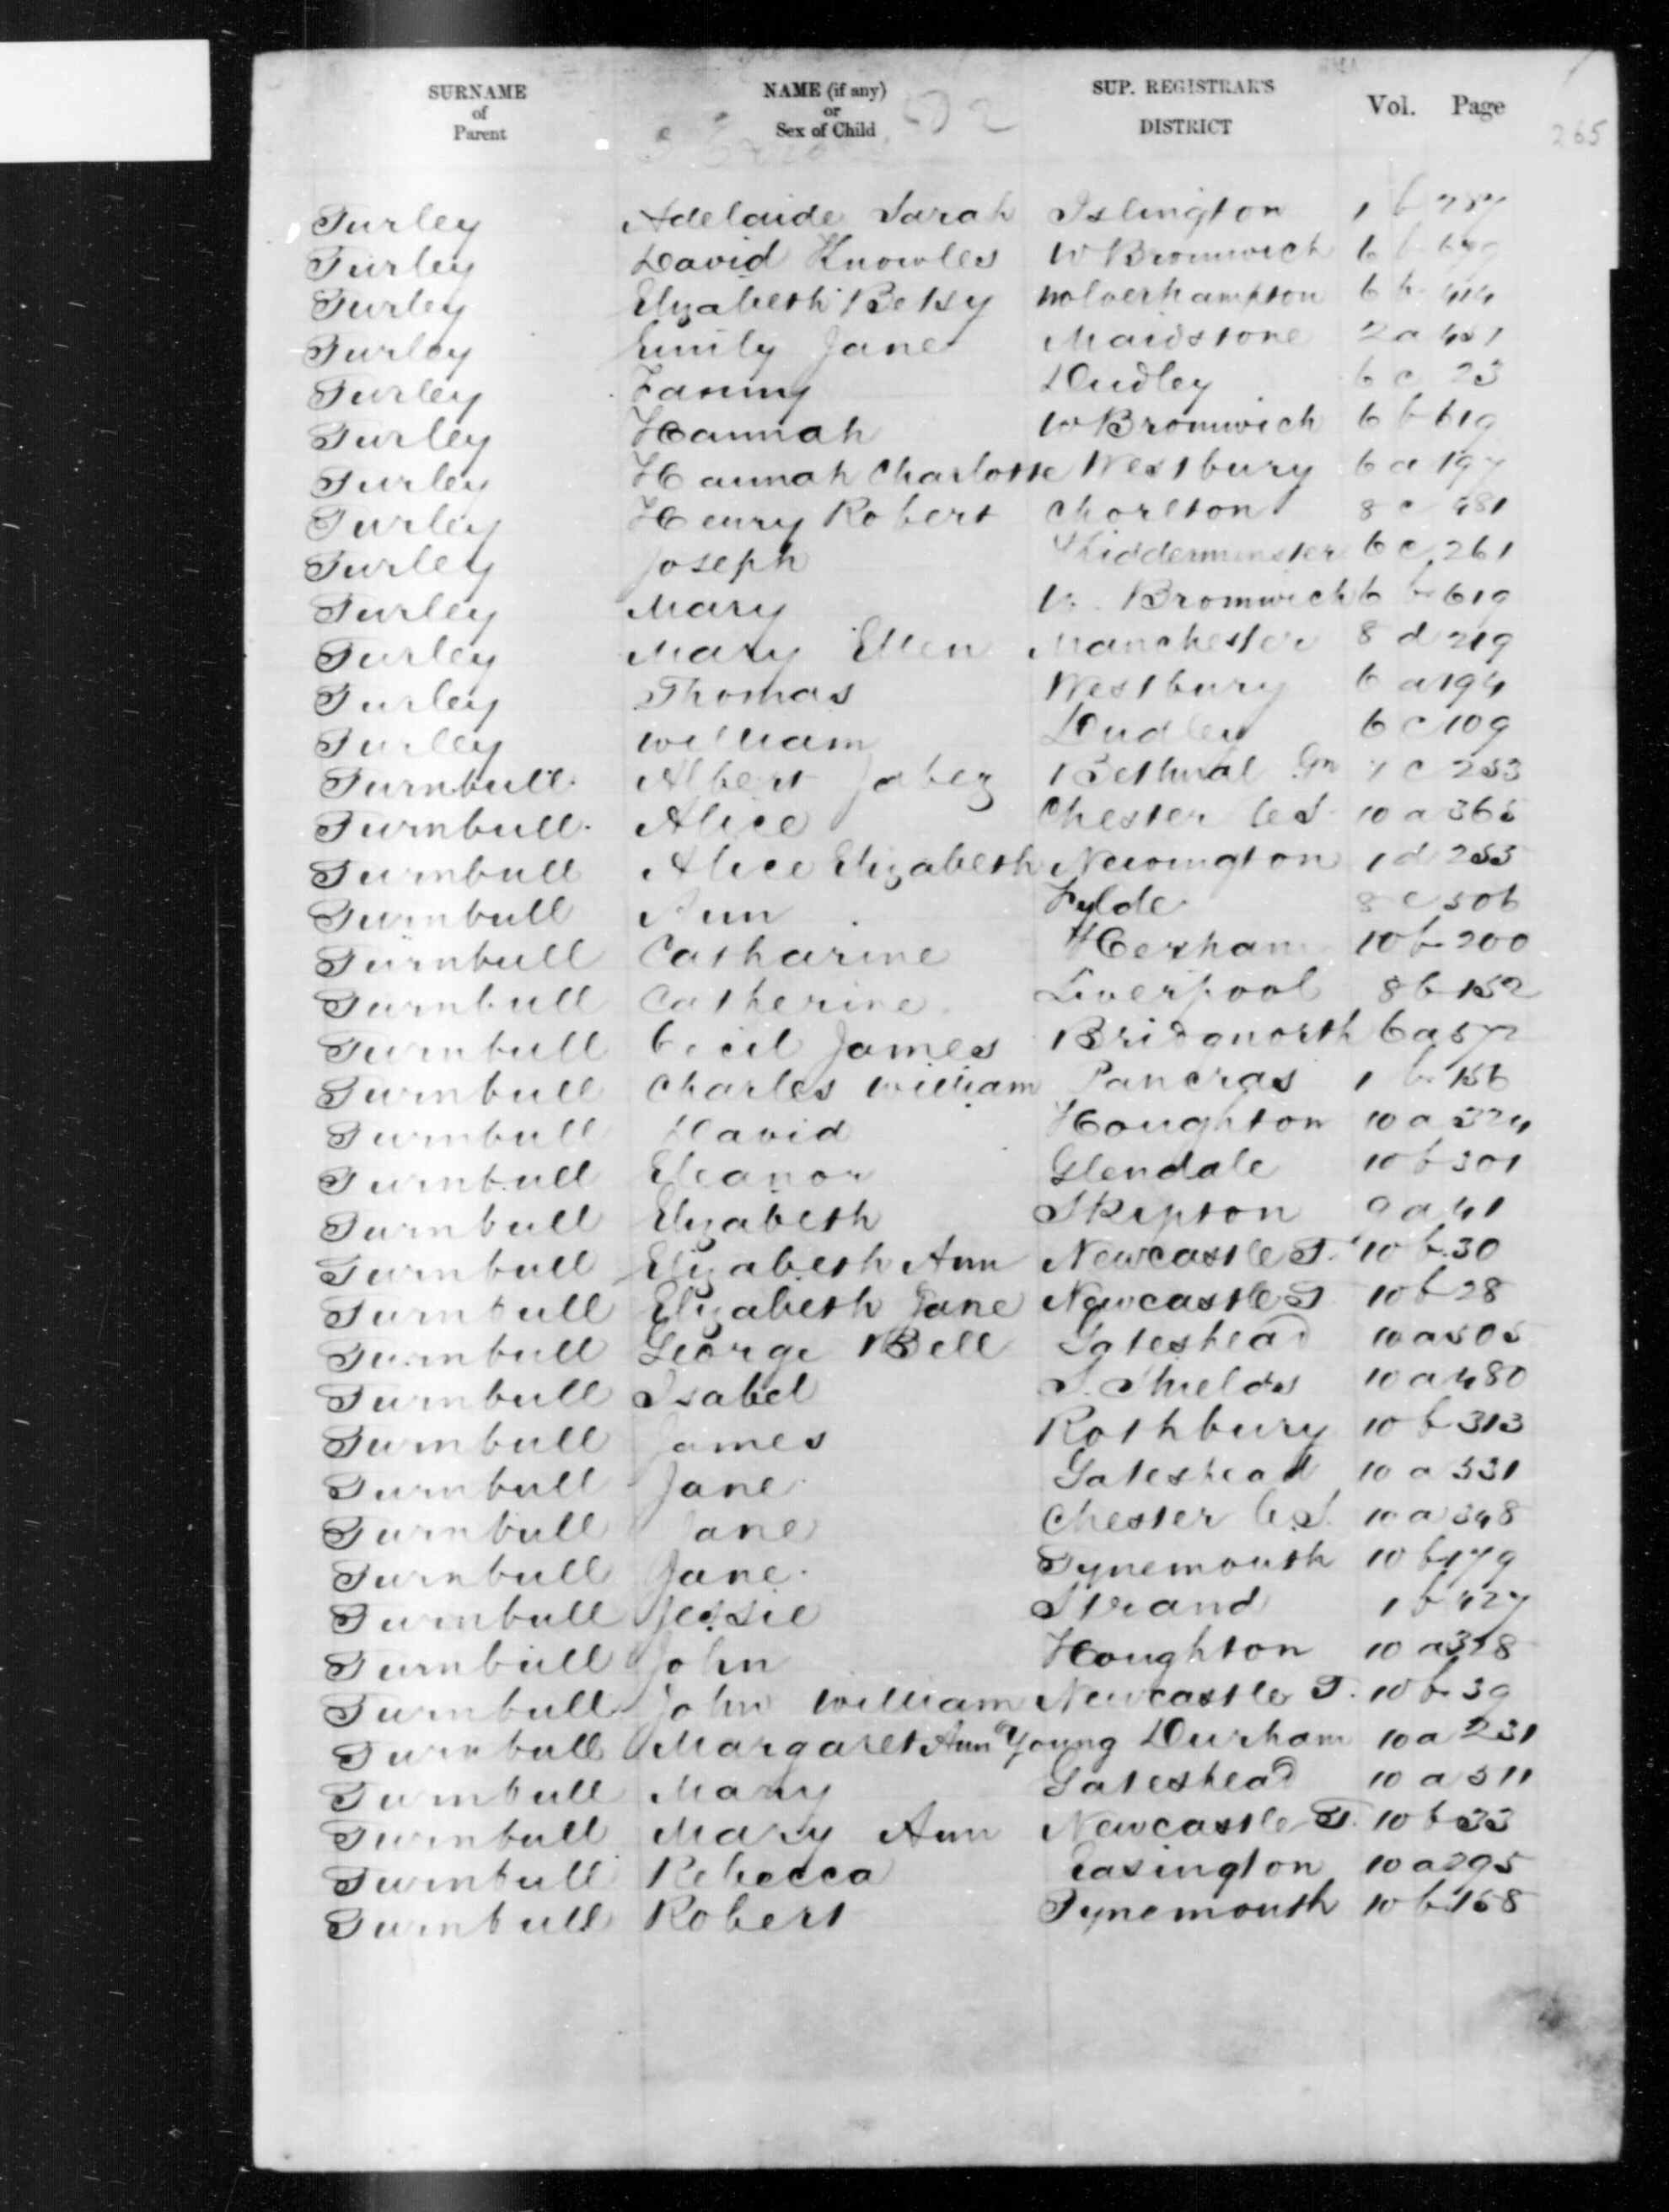 SURNAME of Parent NAME (if any) or Sex of Child SUP. REGISTRAR'S DISTRICT Vol. Page
265
Turley Adelaide Sarah Islington 1 b 287
Turley David Knowles W Bromwich 6 b
Turley Elizabeth Betsy Wolverhampton 6 b 414
Turley Emily Jane Maidstone 2 a 451
Turley Fanny Dudley 6 c 23
Turley Hannah W Bromwich 6 b 619
Turley Hannah Charlotte Westbury 6 a 197
Turley Henry Robert Chorlton 8 c 481
Turley Joseph Kidderminster 6 c 261
Turley Mary W. Bromwich 6 b 619
Turley Mary Ellen Manchester 8 d 219
Turley Thomas Westbury 6 a 194
Turley William Dudley 6 c 109
Turnbull Albert Jabez Bethnal Gn 1 c 253
Turnbull Alice Chester le S. 10 a 365
Turnbull Alice Elizabeth Newington 1 d 255
Turnbull Ann Fylde 8 e 506
Turnbull Catharine Hexham 10 b 200
Turnbull Catherine Liverpool 8 b 152
Turnbull Cecil James Bridgnorth 6 a 572
Turnbull Charles William Pancras 1 b 156
Turnbull David Houghton 10 a 324
Turnbull Eleanor Glendale 10 b 301
Turnbull Elizabeth Skipton 9 a 41
Turnbull Elizabeth Ann Newcastle T. 10 b 30
Turnbull Elizabeth Jane Newcastle T 10 b 28
Turnbull George Bell Gateshead 10 a 505
Turnbull Isabel S. Shields 10 a 480
Turnbull James Rothbury 10 b 313
Turnbull Jane Gateshead 10 a 531
Turnbull Jane Chester le S. 10 a 348
Turnbull Jane Tynemouth 10 b 179
Turnbull Jessie Strand 1 b 427
Turnbull John Houghton 10 a 328
Turnbull John William Newcastle T. 10 b 39
Turnbull Margaret Ann Young Durham 10 a 231
Turnbull Mary Gateshead 10 a 511
Turnbull Mary Ann Newcastle T. 10 b 33
Turnbull Rebecca Easington 10 a 295
Turnbull Robert Tynemouth 10 b 158